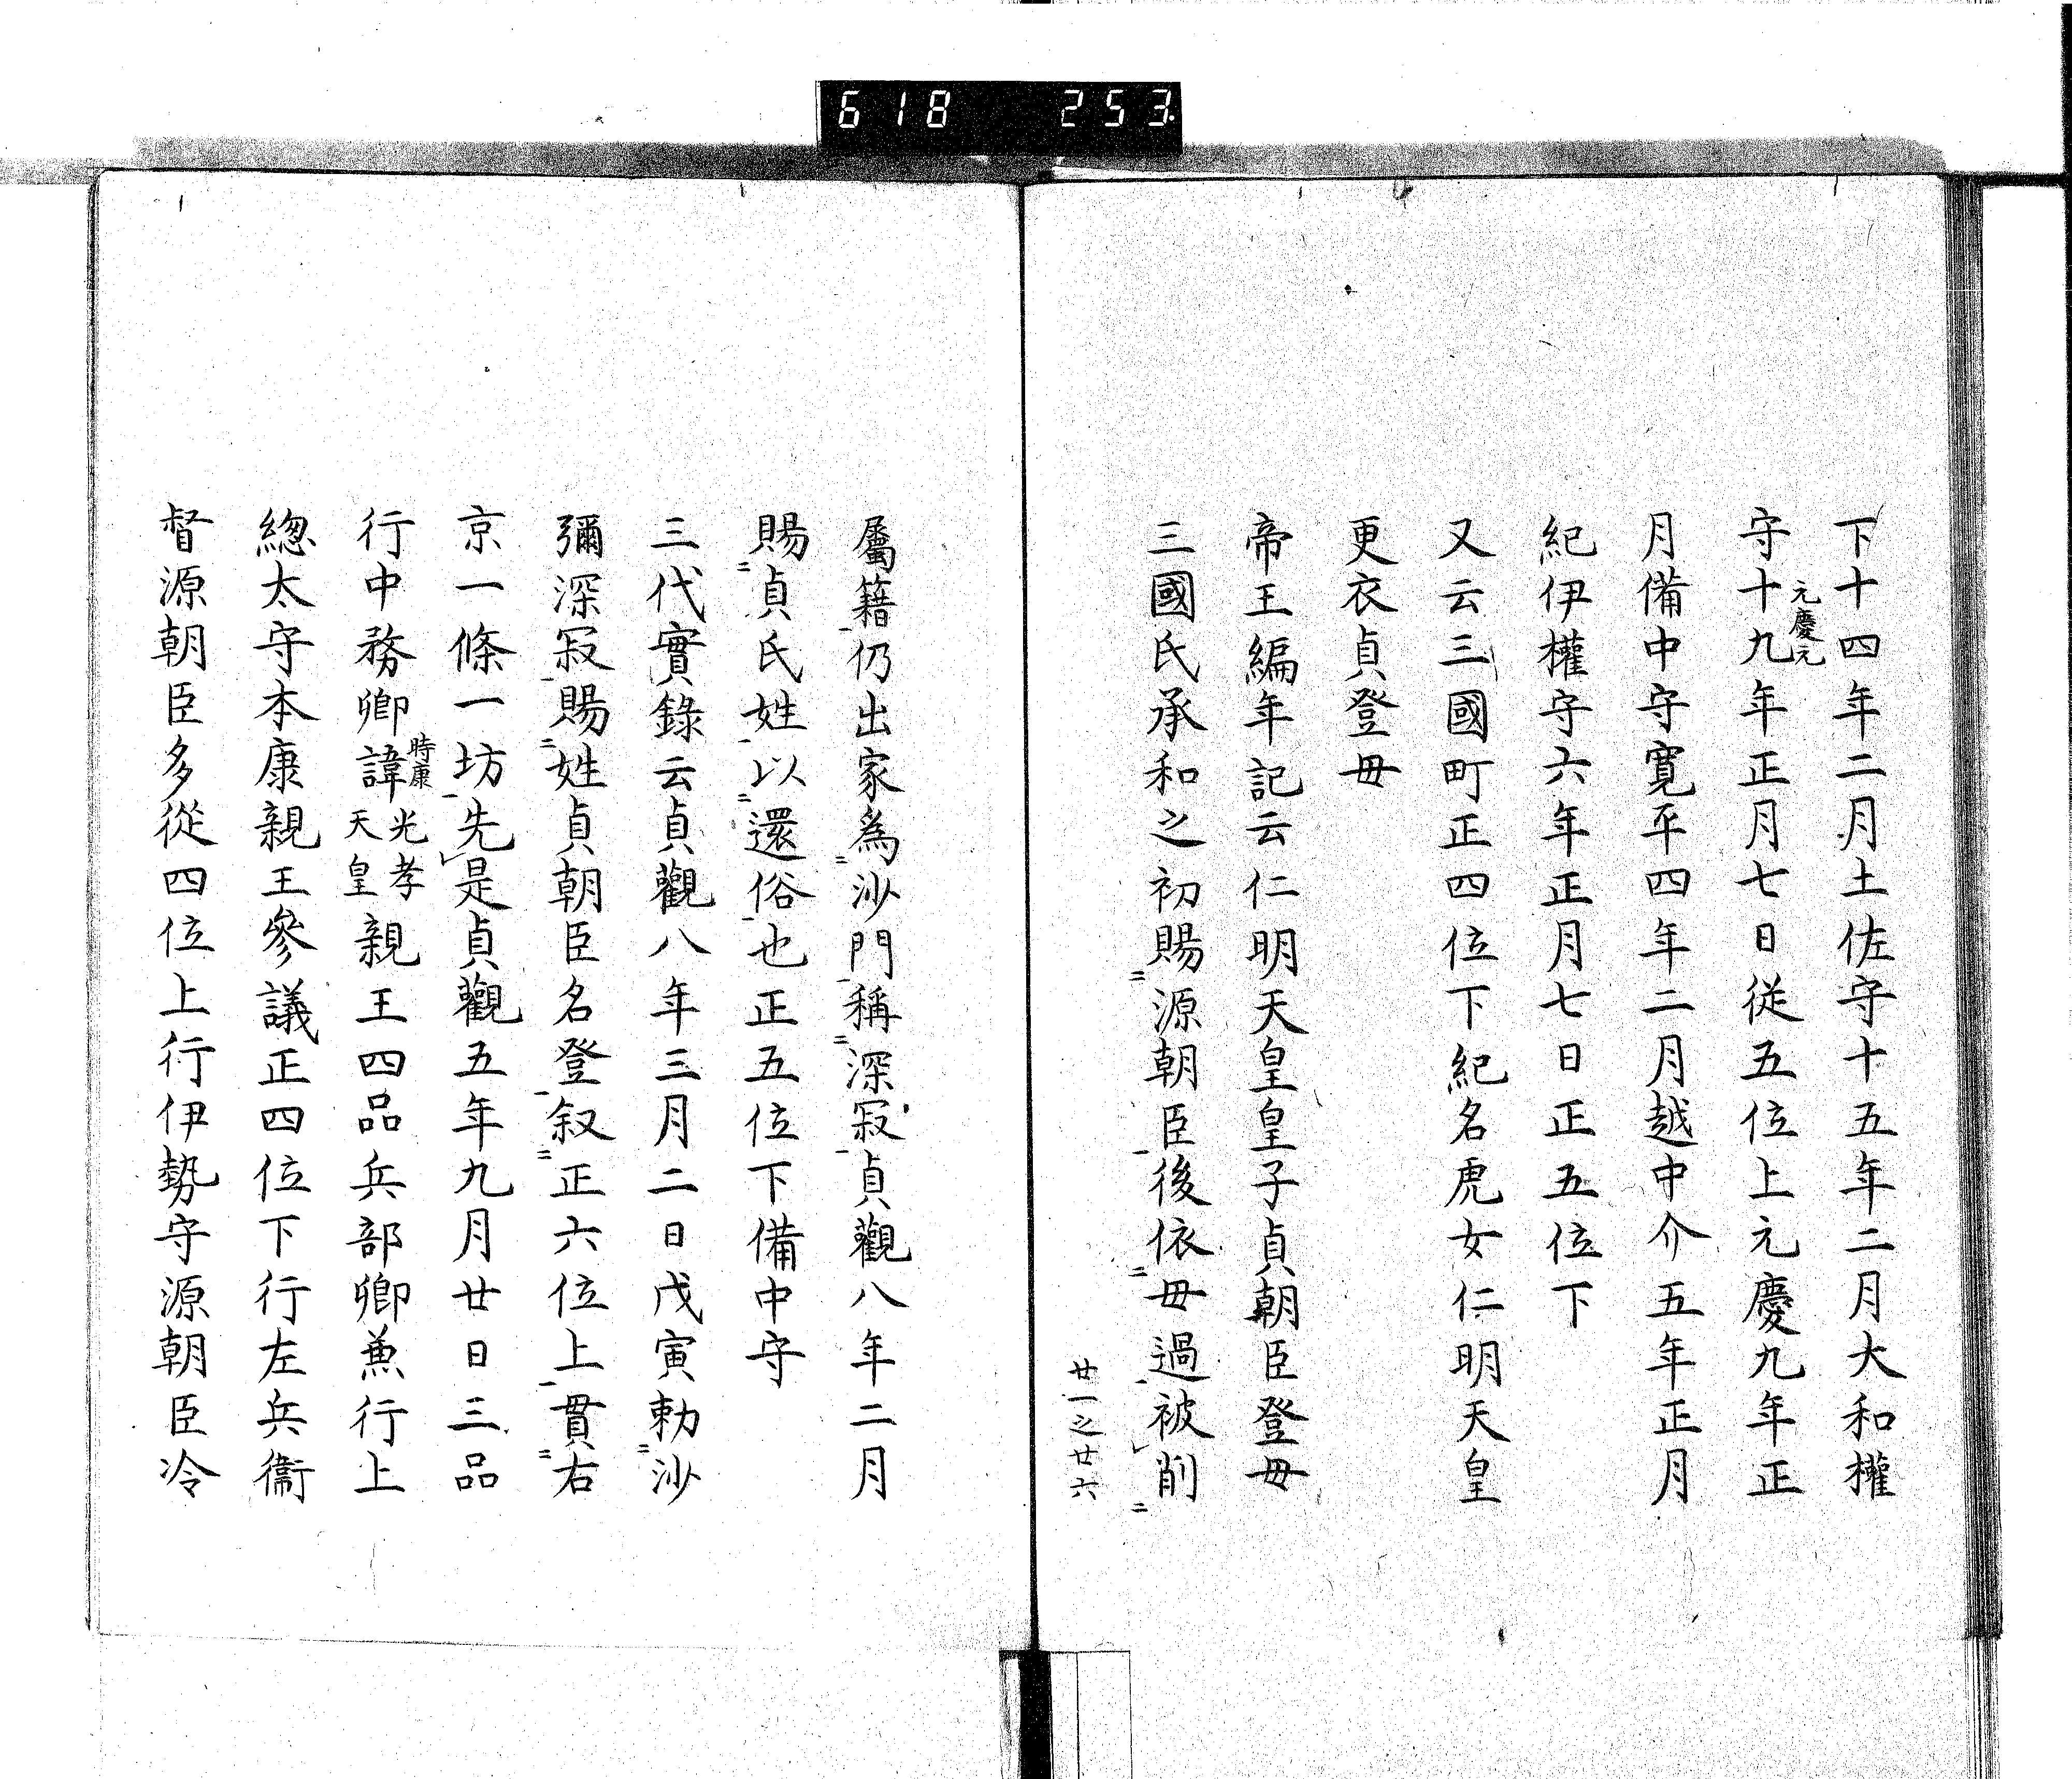 618 253
下十四年二月土佐守十五年二月大和權
元慶元
守十九年正月七日從五位上元慶九年正
月備中守寛平四年二月越中介五年正月
紀伊權守六年正月七日正五位下
又云三國町正四位下紀名虎女仁明天皇
更衣貞登毋
帝王編年記云仁明天皇皇子貞朝臣登毋
三國氏承和之初賜源朝臣後依毋過被削
廿一之廿六
屬籍仍出家為沙門稱深寂貞觀八年二月
賜貞氏姓以還俗也正五位下備中守
三代實錄云貞觀八年三月二日戊寅勅沙
彌深寂賜姓貞朝臣名登叙正六位上貫右
京一條一坊先是貞觀五年九月廿日三品
行中務卿諱時康光孝天皇親王四品兵部卿兼行上
總太守本康親王參議正四位下行左兵衞
督源朝臣多從四位上行伊勢守源朝臣冷